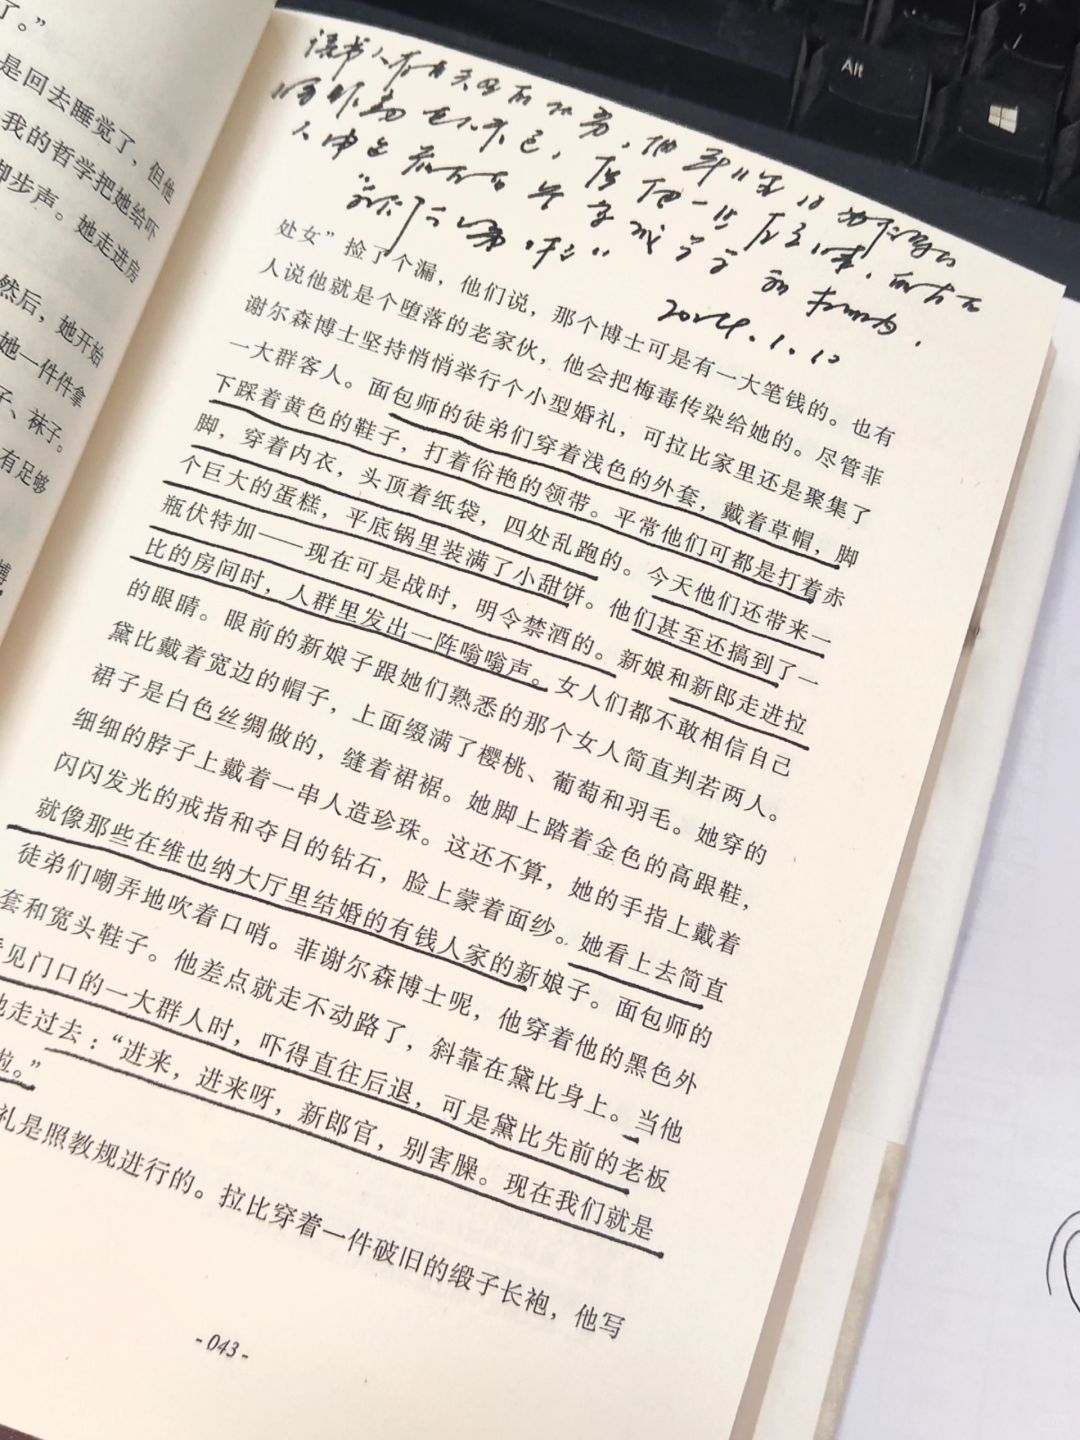 了。”
是回去睡觉了，但他
我的哲学把她给吓
脚步声。她走进房
然后，她开始
她一件件拿
子、袜子。
有足够
博
Alt
?
读书人
2024.1.10
处女”捡了个漏，他们说，那个博士可是有一大笔钱的。也有
人说他就是个堕落的老家伙，他会把梅毒传染给她的。尽管菲
谢尔森博士坚持悄悄举行个小型婚礼，可拉比家里还是聚集了
一大群客人。面包师的徒弟们穿着浅色的外套，戴着草帽，脚
下踩着黄色的鞋子，打着俗艳的领带。平常他们可都是打着赤
脚，穿着内衣，头顶着纸袋，四处乱跑的。今天他们还带来一
个巨大的蛋糕，平底锅里装满了小甜饼。他们甚至还搞到了一
瓶伏特加——现在可是战时，明令禁酒的。新娘和新郎走进拉
比的房间时，人群里发出一阵嗡嗡声。女人们都不敢相信自己
的眼睛。眼前的新娘子跟她们熟悉的那个女人简直判若两人。
黛比戴着宽边的帽子，上面缀满了樱桃、葡萄和羽毛。她穿的
裙子是白色丝绸做的，缝着裙裾。她脚上踏着金色的高跟鞋，
细细的脖子上戴着一串人造珍珠。这还不算，她的手指上戴着
闪闪发光的戒指和夺目的钻石，脸上蒙着面纱。她看上去简直
就像那些在维也纳大厅里结婚的有钱人家的新娘子。面包师的
徒弟们嘲弄地吹着口哨。菲谢尔森博士呢，他穿着他的黑色外
套和宽头鞋子。他差点就走不动路了，斜靠在黛比身上。当他
看见门口的一大群人时，吓得直往后退，可是黛比先前的老板
走过去：“进来，进来呀，新郎官，别害臊。现在我们就是
啦。”
礼是照教规进行的。拉比穿着一件破旧的缎子长袍，他写
-043-